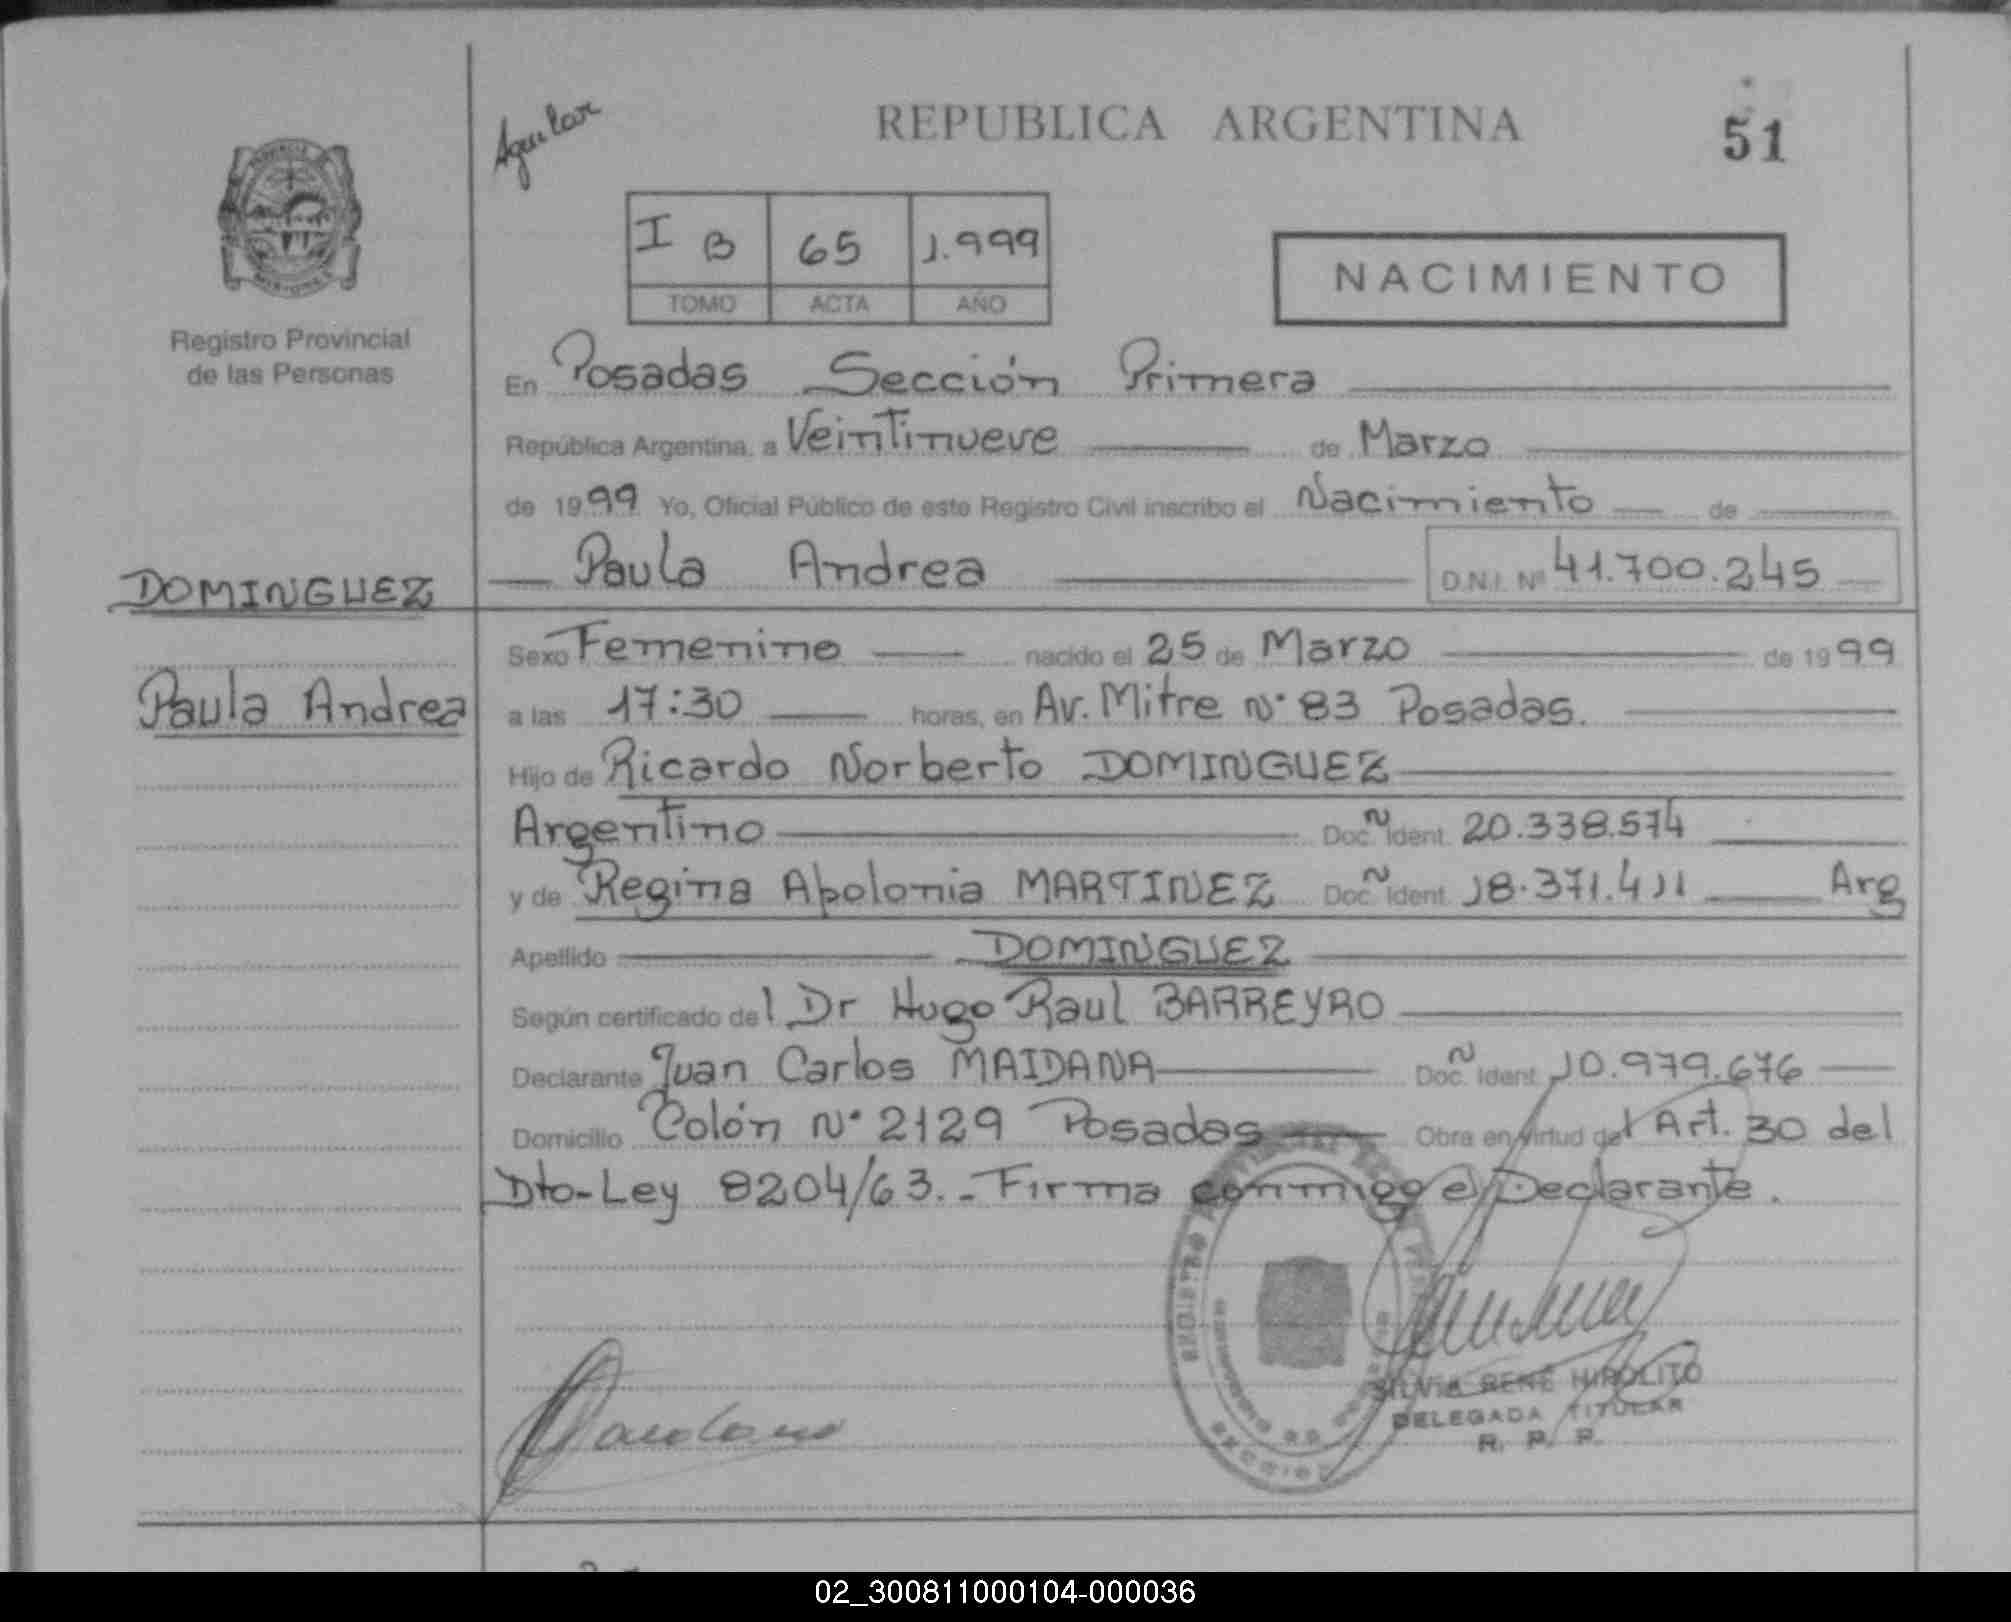 Aguilar
REPUBLICA ARGENTINA
51
I B 65 1.999
TOMO ACTA AÑO
NACIMIENTO
Registro Provincial
de las Personas
En Posadas Sección Primera
República Argentina, a Veintinueve de Marzo
de 1999 Yo, Oficial Público de este Registro Civil inscribo el Nacimiento de
Paula Andrea D.N.I. Nº 41.700.245
DOMINGUEZ
Paula Andrea
Sexo Femenino nacido el 25 de Marzo de 1999
a las 17:30 horas, en Av. Mitre Nº 83 Posadas.
Hijo de Ricardo Norberto DOMINGUEZ
Argentino Doc. Ident. 20.338.574
y de Regina Apolonia MARTINEZ Doc. Ident. 18.371.411 Arg
Apellido DOMINGUEZ
Según certificado del Dr Hugo Raul BARREYRO
Declarante Juan Carlos MAIDANA Doc. Ident. 10.979.676
Domicilio Colón Nº 2129 Posadas Obra en virtud del Art. 30 del
Dto-Ley 8204/63.- Firma conmigo el Declarante.
SILVIA RENÉ HIPOLITO
DELEGADA TITULAR
R. P. P.
02_300811000104-000036